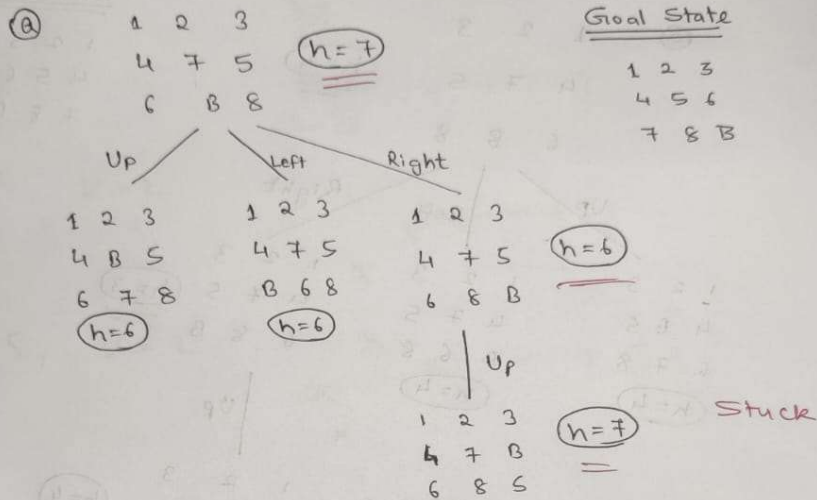 Q
1 2 3
4 7 5
6 B 8
h = 7
Goal State
1 2 3
4 5 6
7 8 B
Up
Left
Right
1 2 3
4 B 5
6 7 8
h=6
1 2 3
4 7 5
B 6 8
h=6
1 2 3
4 7 5
6 8 B
h=6
Up
1 2 3
4 7 B
6 8 5
h=7
Stuck